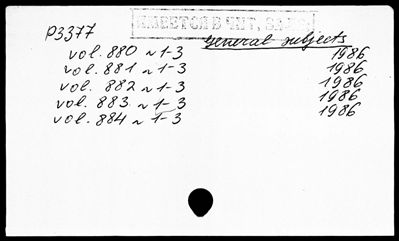 ИМЕЕТСЯ В ЧИТ. ЗАЛЕ
P3377
general subjects
vol. 880 N 1-3 1986
vol. 881 N 1-3 1986
vol. 882 N 1-3 1986
vol. 883 N 1-3 1986
vol. 884 N 1-3 1986